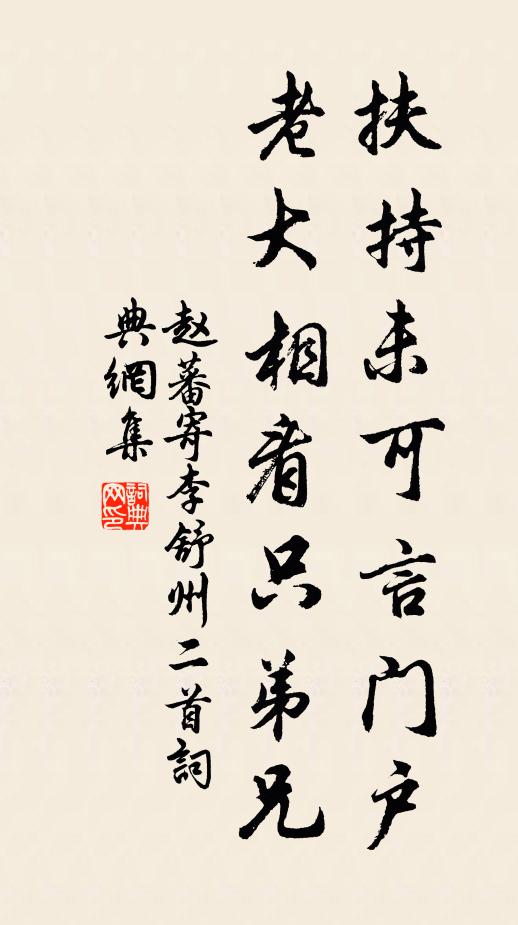 扶持未可言門户
老大相看只弟兄
赵蕃寄李舒州二首詞
典網集
詞典
网印